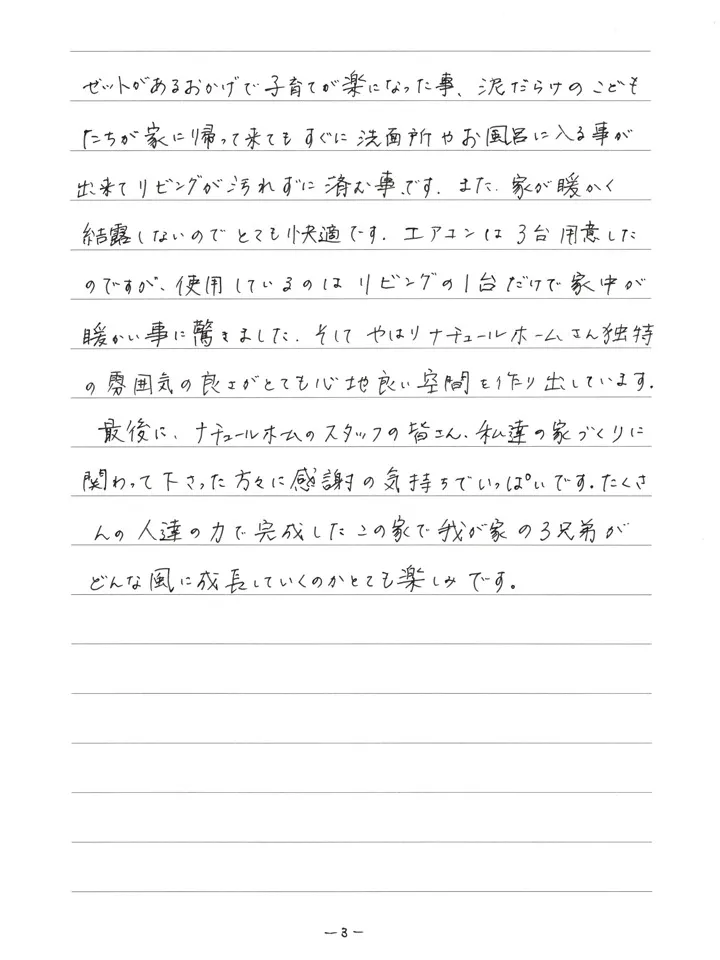 ゼットがあるおかげで子育てが楽になった事、泥だらけのこども
たちが家に帰って来てもすぐに洗面所やお風呂に入る事が
出来てリビングが汚れずに済む事です。また、家が暖かく
結露しないのでとても快適です。エアコンは3台用意した
のですが、使用しているのはリビングの1台だけで家中が
暖かい事に驚きました。そしてやはりナチュールホームさん独特
の雰囲気の良さがとても心地良い空間を作り出しています。
最後に、ナチュールホームのスタッフの皆さん、私達の家づくりに
関わって下さった方々に感謝の気持ちでいっぱいです。たくさ
んの人達の力で完成したこの家で我が家の3兄弟が
どんな風に成長していくのかとても楽しみです。
－3－